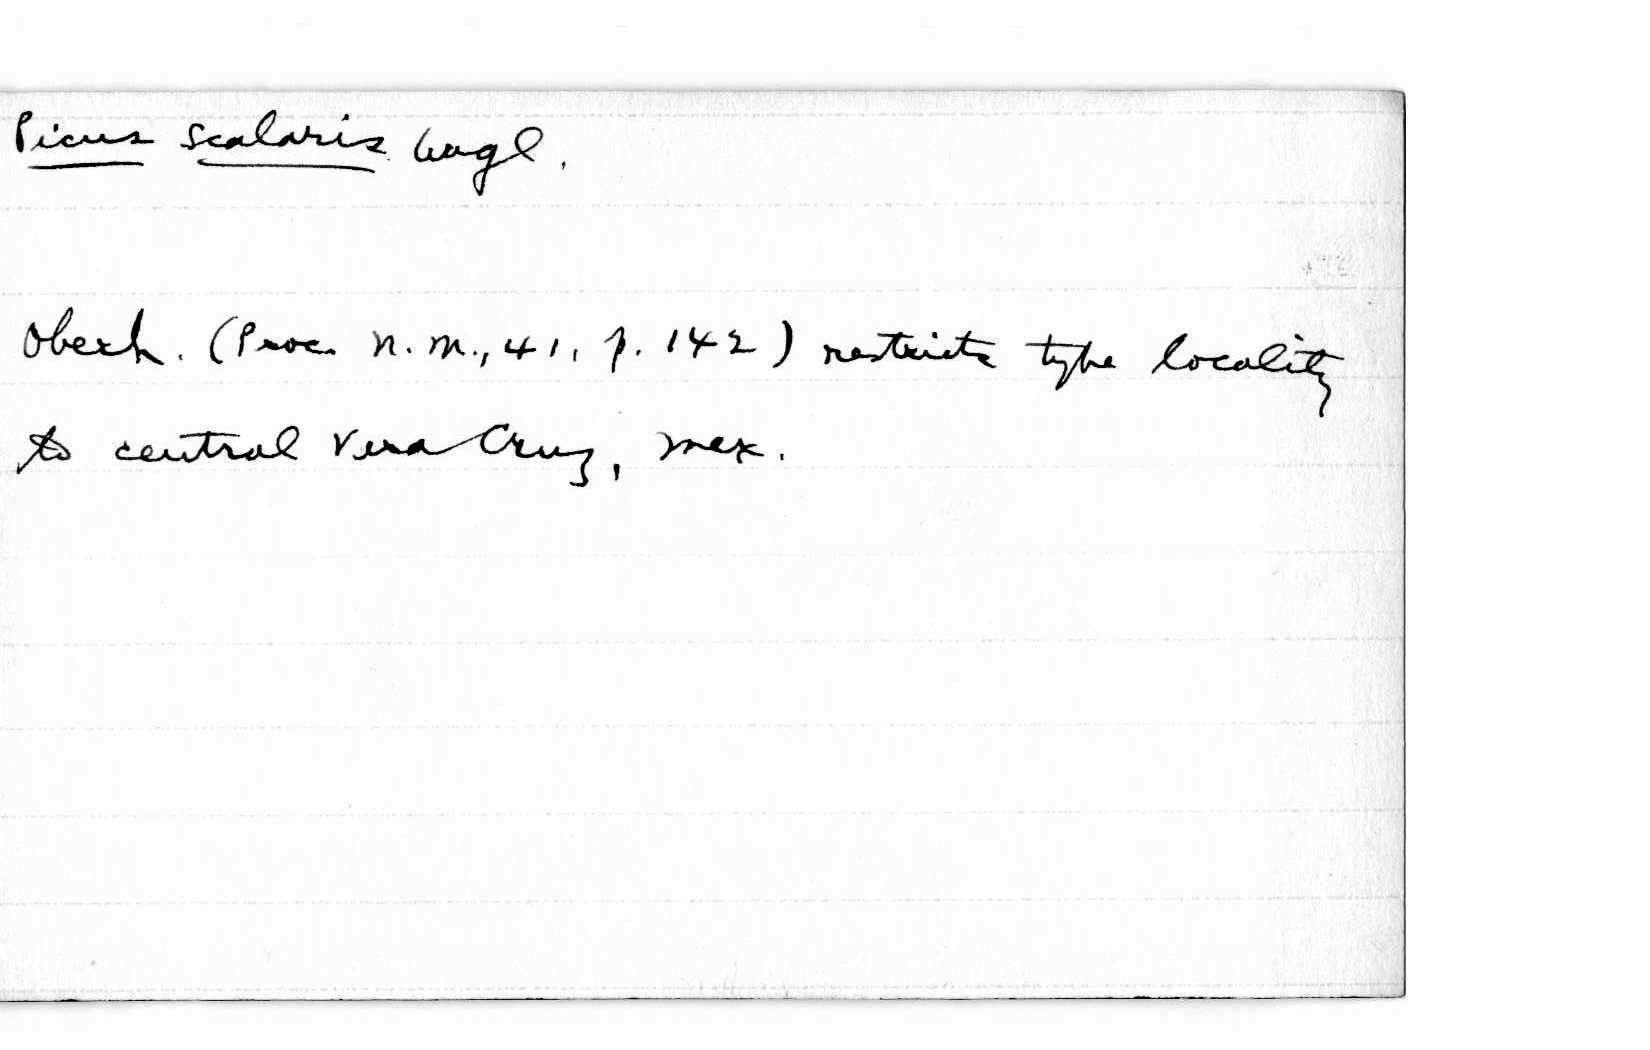 Picus scalaris Wagl.
Oberh. (Proc. N.M., 41, p. 142) restricts type locality
to central Vera Cruz, Mex.